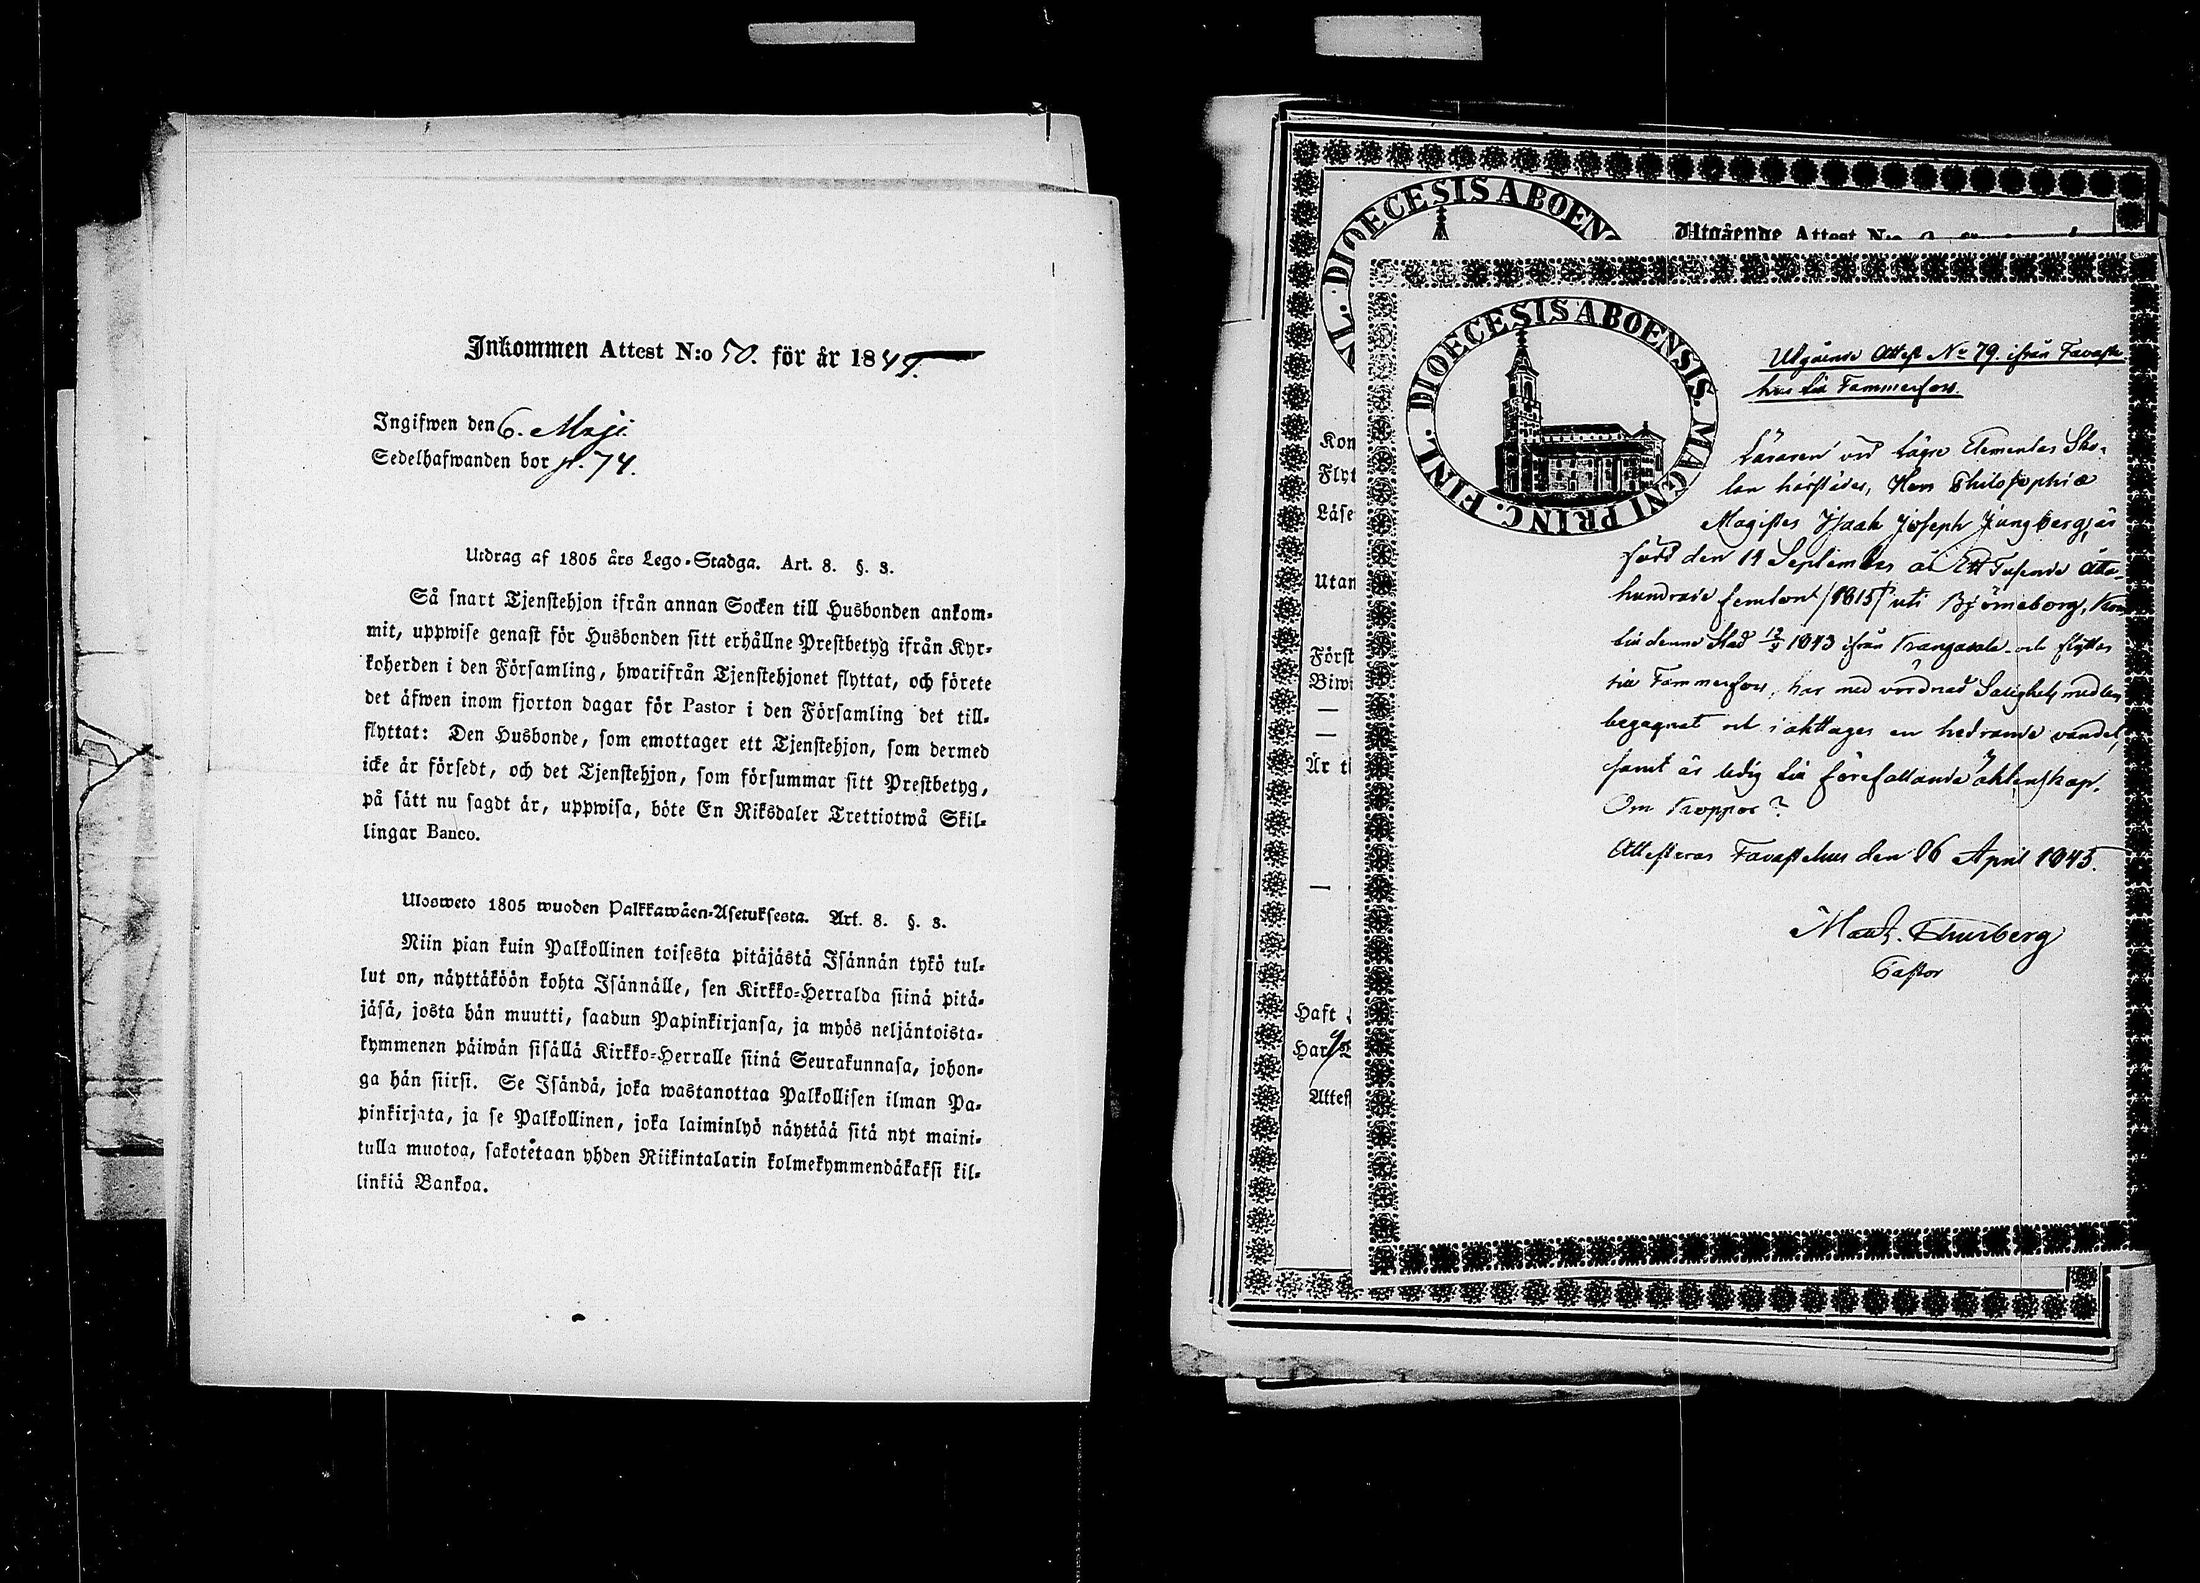 Inkommen Attest N:o 50. för år 1849.
Ingifwen den 6. Maji.
Sedelhafwanden bor p. 74.
Utdrag af 1805 års Lego-Stadga. Art. 8. §. 3.
Så snart Tjenstehjon ifrån annan Socken till Husbonden ankom-
mit, uppwise genast för Husbonden sitt erhållne Prestbetyg ifrån Kyr-
koherden i den Församling, hwarifrån Tjenstehjonet flyttat, och förete
det äfwen inom fjorton dagar för Pastor i den Församling det till-
flyttat: Den Husbonde, som emottager ett Tjenstehjon, som dermed
icke är försedt, och det Tjenstehjon, som försummar sitt Prestbetyg,
på sätt nu sagdt är, uppwisa, böte En Riksdaler Trettiotwå Skil-
lingar Banco.
Ulosweto 1805 wuoden Palkkawäen-Asetuksesta. Art. 8. §. 3.
Niin pian kuin Palkollinen toisesta pitäjästä Isännän tykö tul-
lut on, näyttäköön kohta Isännälle, sen Kirkko-Herralda siinä pitä-
jäsä, josta hän muutti, saadun Papinkirjansa, ja myös neljäntoista-
kymmenen päiwän sisällä Kirkko-Herralle siinä Seurakunnasa, johon-
ga hän siirsi. Se Isändä, joka wastanottaa Palkollisen ilman Pa-
pinkirjata, ja se Palkollinen, joka laiminlyö näyttää sitä nyt maini-
tulla muotoa, sakotetaan yhden Riikintalarin kolmekymmendäkaksi kil-
linkiä Bankoa.
DIOECESIS ABOEN
NL.
Utgående Attest N:o
Kon
Flyt
Läse
Utan
Först
Biwi
Är t
Haft
Har
Attest
DIOECESIS ABOENSIS. MAGNI PRINC. FINL.
Utgående Attest No 79. ifrån Tavaste-
hus till Tammerfors.
Läraren vid Lägre Elementar Sko-
lan härstädes, Herr Philosophiæ
Magister Isaak Joseph Ljungberg, är
född den 14 September år Ett Tusende Åtta-
hundrade femton /1815/ uti Björneborg, kom
till denna Stad 1843 ifrån Kangasala och flyttar
till Tammerfors, har med vördnad Salighets medlen
begagnat och iakttager en hedrande vandel,
samt är ledig till förefallande Äktenskap.
Om Koppor?
Attesteras Tavastehus den 26 April 1845.
Maut. Thurberg
Pastor